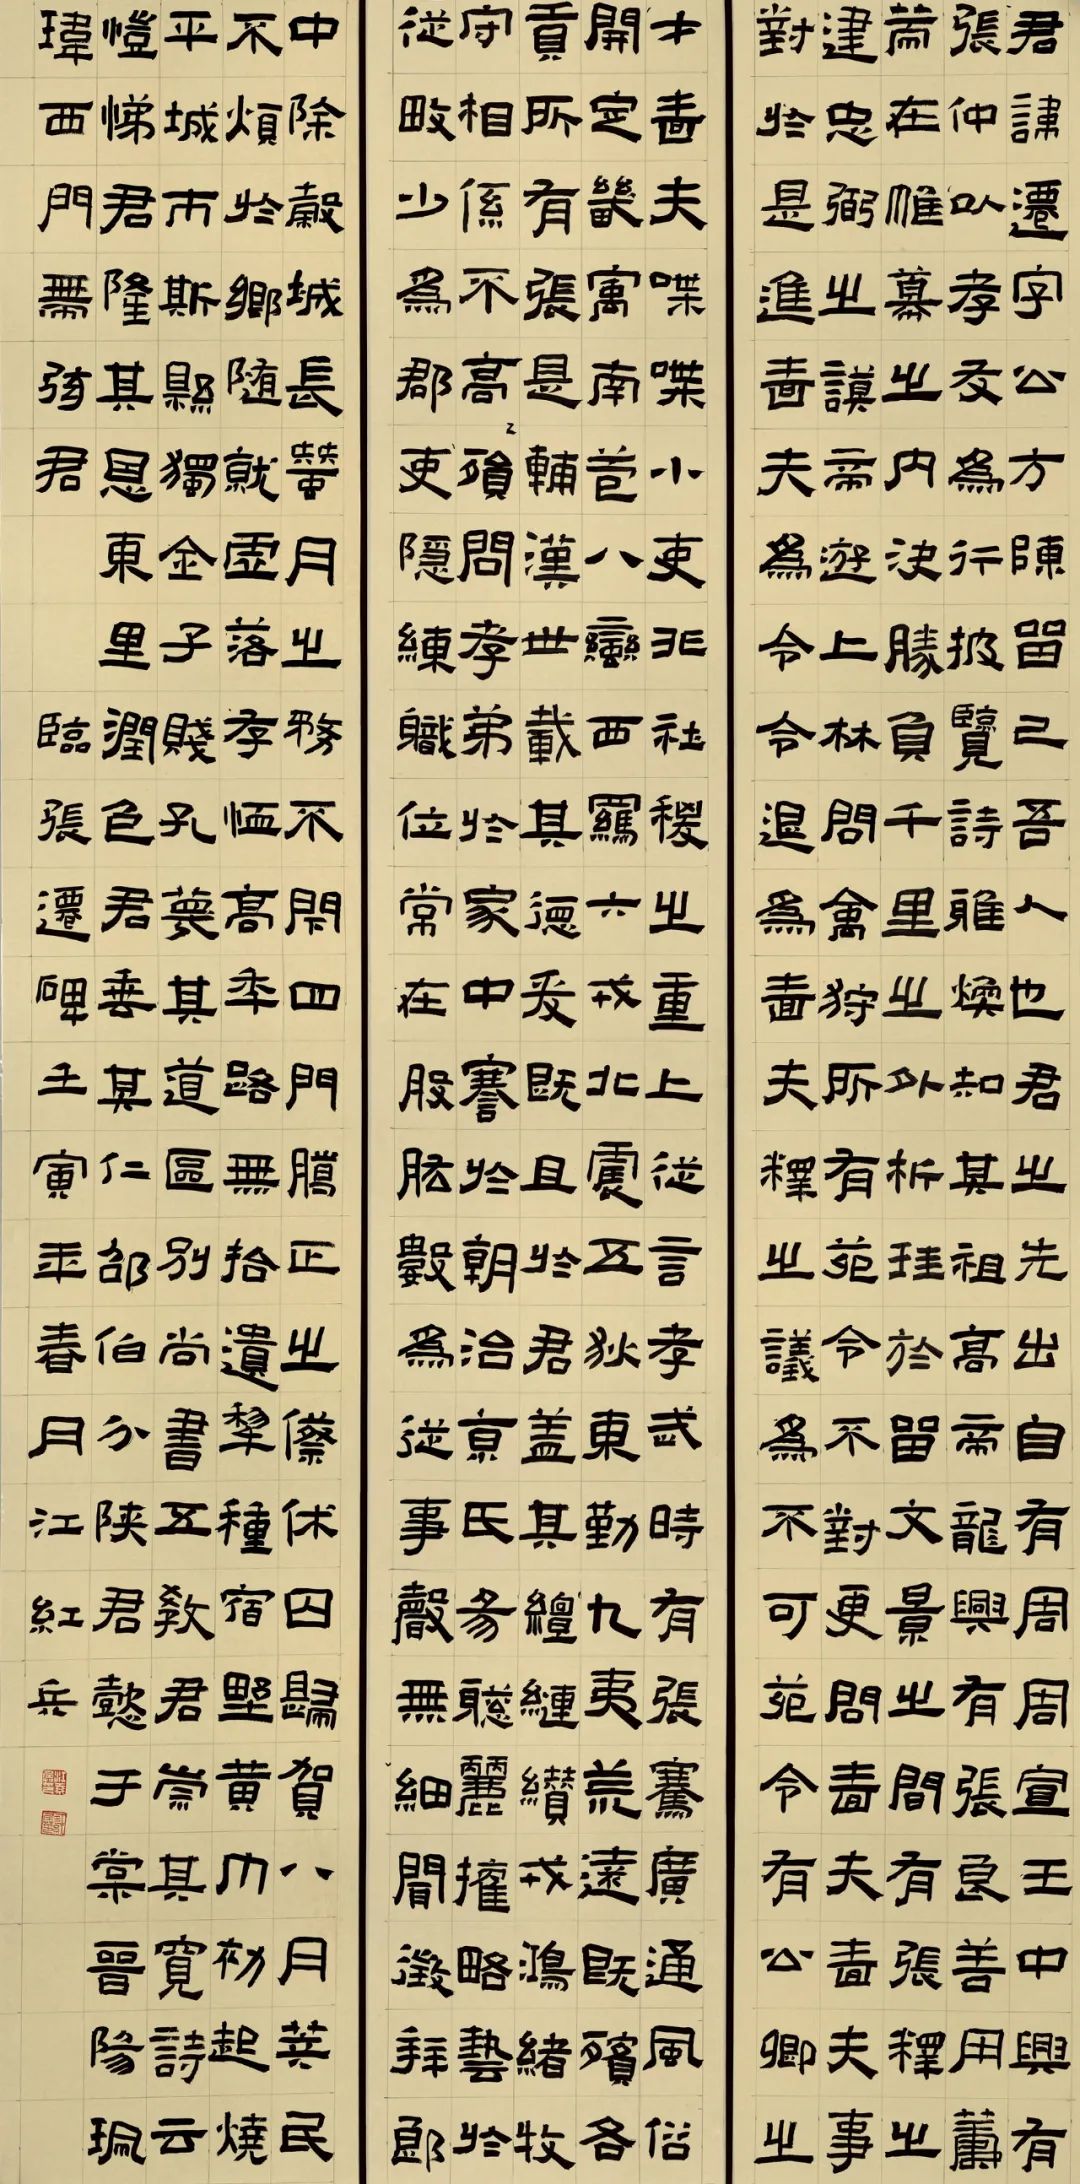 君諱遷字公方陳留己吾人也君之先出自有周周宣王中興有
張仲以孝友為行披覽詩雅煥知其祖高帝龍興有張良善用籌
策在帷幕之內決勝負千里之外析珪於留文景之間有張釋之
建忠弼之謨帝遊上林問禽狩所有苑令不對更問嗇夫嗇夫事
對於是進嗇夫為令令退為嗇夫釋之議為不可苑令有公卿之
才嗇夫喋喋小吏非社稷之重上從言孝武時有張騫廣通風俗
開定畿寓南苞八蠻西羈六戎北震五狄東勤九夷荒遠既殯各
貢所有張是輔漢世載其德爰既且於君蓋其繵縺纘戎鴻緒牧
守相係不高殞問孝弟於家中謇於朝治京氏易聰麗權略藝於
從畋少為郡吏隱練職位常在股肱數為從事聲無細聞徵拜郎
中除穀城長蠶月之務不閉四門臘正之僚休囚歸賀八月筭民
不煩於鄉隨就虛落存恤高年路無拾遺犁種宿野黃巾初起燒
平城市斯縣獨金子賤孔蔑其道區別尚書五教君崇其寬詩云
愷悌君隆其恩東里潤色君垂其仁邵伯分陝君懿于棠晉陽珮
瑋西門帶弦君 臨張遷碑壬寅年春月江紅兵